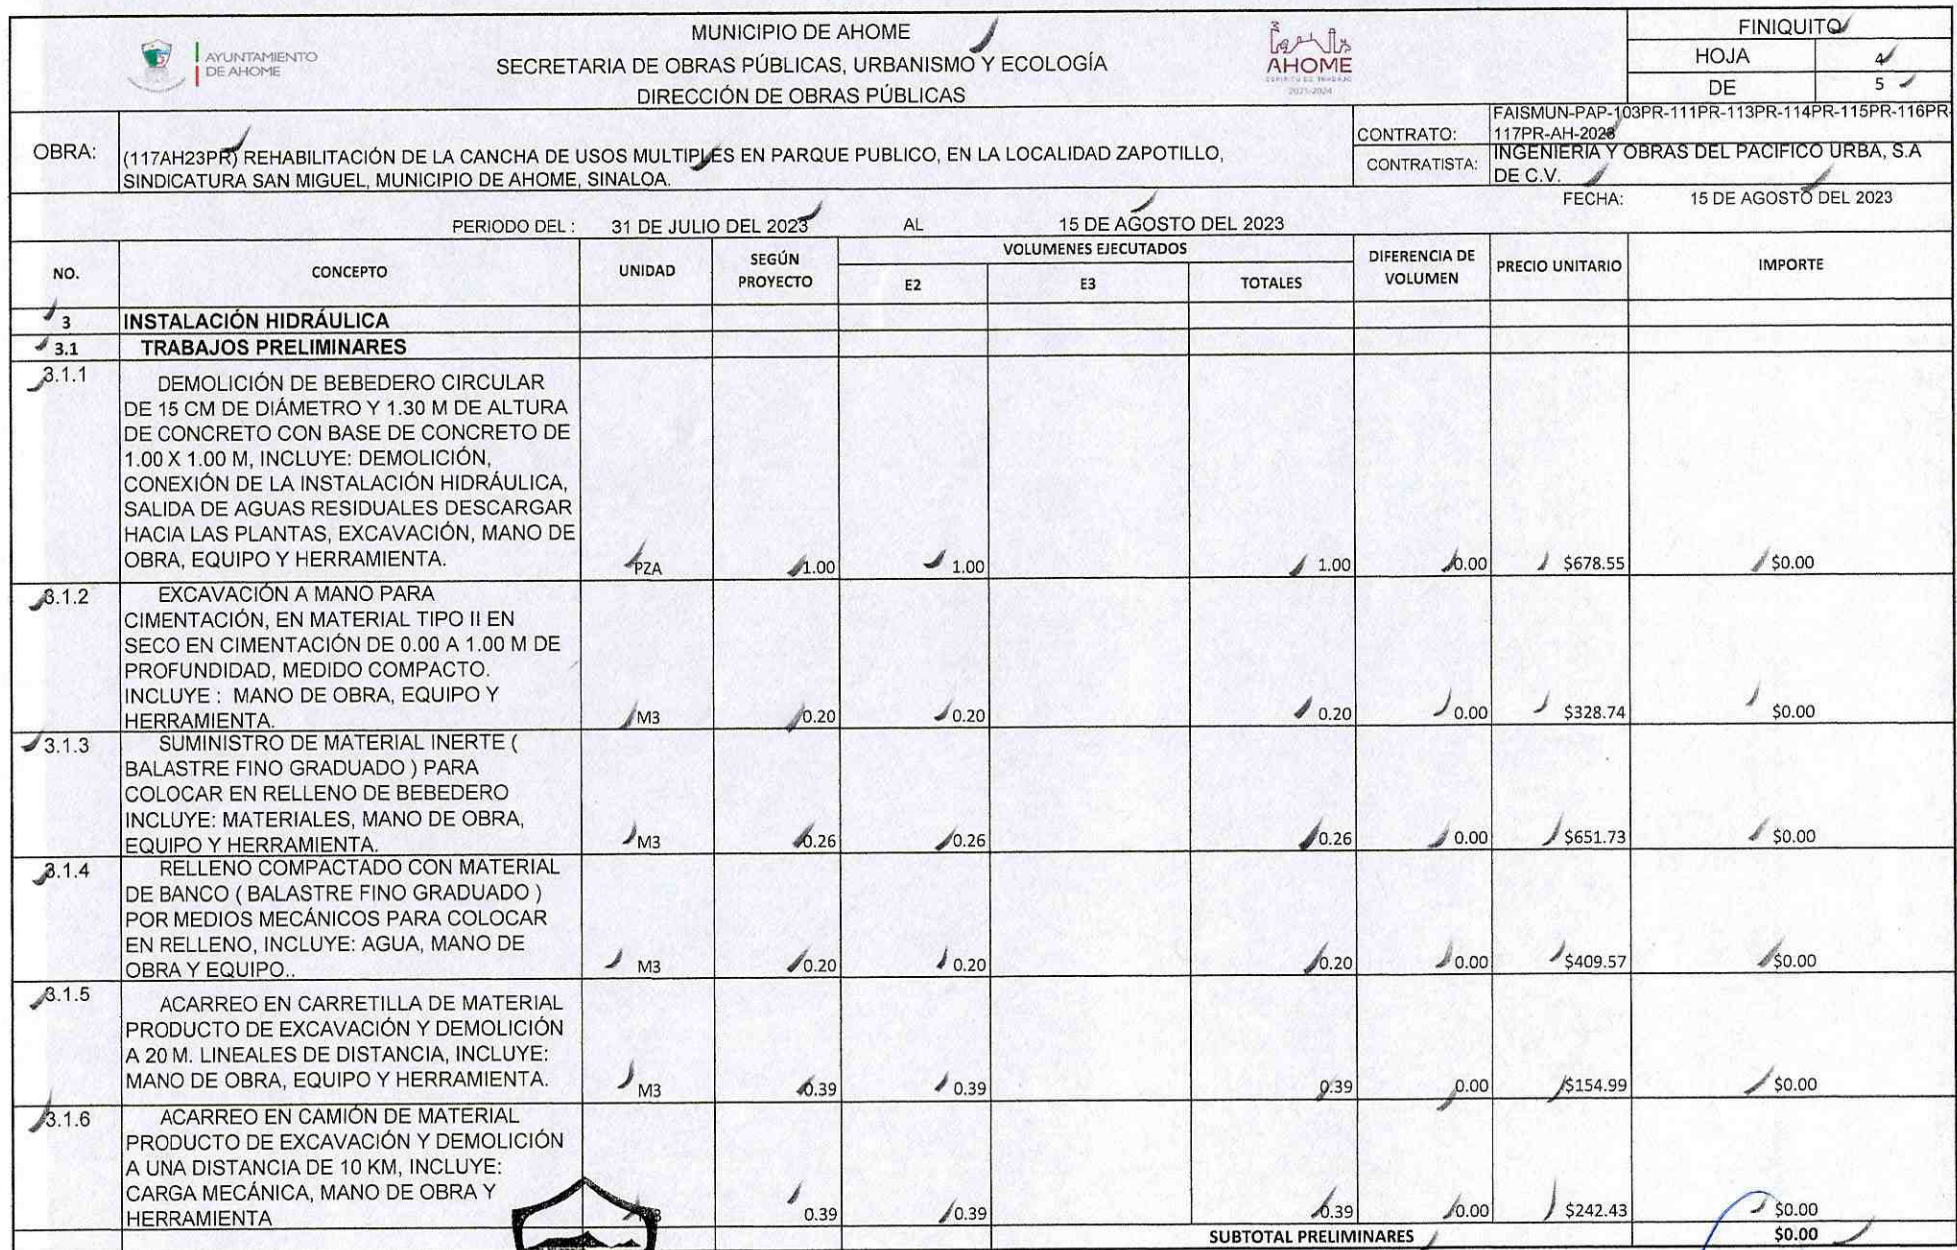 AYUNTAMIENTO
DE AHOME
MUNICIPIO DE AHOME
SECRETARIA DE OBRAS PÚBLICAS, URBANISMO Y ECOLOGÍA
DIRECCIÓN DE OBRAS PÚBLICAS
AHOME
ESPIRITU DE TRABAJO
2021-2024
FINIQUITO
HOJA 4
DE 5
OBRA:
(117AH23PR) REHABILITACIÓN DE LA CANCHA DE USOS MULTIPLES EN PARQUE PUBLICO, EN LA LOCALIDAD ZAPOTILLO,
SINDICATURA SAN MIGUEL, MUNICIPIO DE AHOME, SINALOA.
CONTRATO:
FAISMUN-PAP-103PR-111PR-113PR-114PR-115PR-116PR-
117PR-AH-2023
CONTRATISTA:
INGENIERIA Y OBRAS DEL PACIFICO URBA, S.A
DE C.V.
FECHA: 15 DE AGOSTO DEL 2023
PERIODO DEL : 31 DE JULIO DEL 2023 AL 15 DE AGOSTO DEL 2023
NO. CONCEPTO UNIDAD SEGÚN PROYECTO VOLUMENES EJECUTADOS DIFERENCIA DE VOLUMEN PRECIO UNITARIO IMPORTE
E2 E3 TOTALES
3 INSTALACIÓN HIDRÁULICA
3.1 TRABAJOS PRELIMINARES
3.1.1 DEMOLICIÓN DE BEBEDERO CIRCULAR
DE 15 CM DE DIÁMETRO Y 1.30 M DE ALTURA
DE CONCRETO CON BASE DE CONCRETO DE
1.00 X 1.00 M, INCLUYE: DEMOLICIÓN,
CONEXIÓN DE LA INSTALACIÓN HIDRÁULICA,
SALIDA DE AGUAS RESIDUALES DESCARGAR
HACIA LAS PLANTAS, EXCAVACIÓN, MANO DE
OBRA, EQUIPO Y HERRAMIENTA. PZA 1.00 1.00 1.00 0.00 $678.55 $0.00
3.1.2 EXCAVACIÓN A MANO PARA
CIMENTACIÓN, EN MATERIAL TIPO II EN
SECO EN CIMENTACIÓN DE 0.00 A 1.00 M DE
PROFUNDIDAD, MEDIDO COMPACTO.
INCLUYE : MANO DE OBRA, EQUIPO Y
HERRAMIENTA. M3 0.20 0.20 0.20 0.00 $328.74 $0.00
3.1.3 SUMINISTRO DE MATERIAL INERTE (
BALASTRE FINO GRADUADO ) PARA
COLOCAR EN RELLENO DE BEBEDERO
INCLUYE: MATERIALES, MANO DE OBRA,
EQUIPO Y HERRAMIENTA. M3 0.26 0.26 0.26 0.00 $651.73 $0.00
3.1.4 RELLENO COMPACTADO CON MATERIAL
DE BANCO ( BALASTRE FINO GRADUADO )
POR MEDIOS MECÁNICOS PARA COLOCAR
EN RELLENO, INCLUYE: AGUA, MANO DE
OBRA Y EQUIPO.. M3 0.20 0.20 0.20 0.00 $409.57 $0.00
3.1.5 ACARREO EN CARRETILLA DE MATERIAL
PRODUCTO DE EXCAVACIÓN Y DEMOLICIÓN
A 20 M. LINEALES DE DISTANCIA, INCLUYE:
MANO DE OBRA, EQUIPO Y HERRAMIENTA. M3 0.39 0.39 0.39 0.00 $154.99 $0.00
3.1.6 ACARREO EN CAMIÓN DE MATERIAL
PRODUCTO DE EXCAVACIÓN Y DEMOLICIÓN
A UNA DISTANCIA DE 10 KM, INCLUYE:
CARGA MECÁNICA, MANO DE OBRA Y
HERRAMIENTA 0.39 0.39 0.39 0.00 $242.43 $0.00
SUBTOTAL PRELIMINARES $0.00